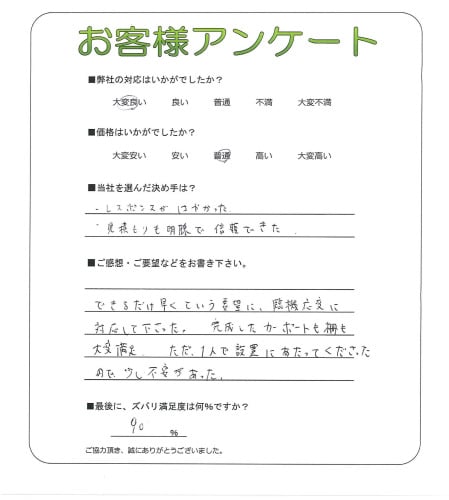 お客様アンケート
■弊社の対応はいかがでしたか？
大変良い　良い　普通　不満　大変不満
■価格はいかがでしたか？
大変安い　安い　普通　高い　大変高い
■当社を選んだ決め手は？
・レスポンスがはやかった.
・見積もりも明瞭で信頼できた.
■ご感想・ご要望などをお書き下さい。
できるだけ早くという要望に、臨機応変に
対応して下さった。完成したカーポートも棚も
大変満足.　ただ、1人で設置にあたってくださった
ので、少し不安があった。
■最後に、ズバリ満足度は何%ですか？
90 %
ご協力頂き、誠にありがとうございました。